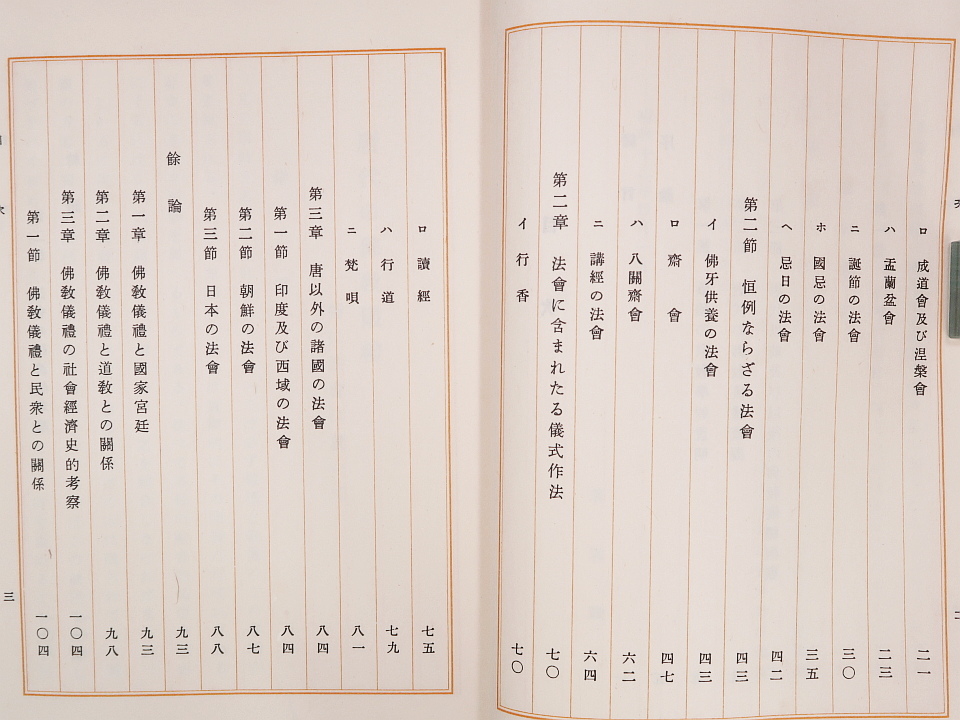 ロ 成道會及び涅槃會 二一
ハ 盂蘭盆會 二三
ニ 誕節の法會 三〇
ホ 國忌の法會 三五
ヘ 忌日の法會 四二
第二節 恒例ならざる法會 四三
イ 佛牙供養の法會 四三
ロ 齋會 四七
ハ 八關齋會 六二
ニ 講經の法會 六四
第二章 法會に含まれたる儀式作法 七〇
イ 行香 七〇
ロ 讀經 七五
ハ 行道 七九
ニ 梵唄 八一
第三章 唐以外の諸國の法會 八四
第一節 印度及び西域の法會 八四
第二節 朝鮮の法會 八七
第三節 日本の法會 八八
餘論 九三
第一章 佛教儀禮と國家宮廷 九三
第二章 佛教儀禮と道教との關係 九八
第三章 佛教儀禮の社會經濟史的考察 一〇四
第一節 佛教儀禮と民衆との關係 一〇四
三